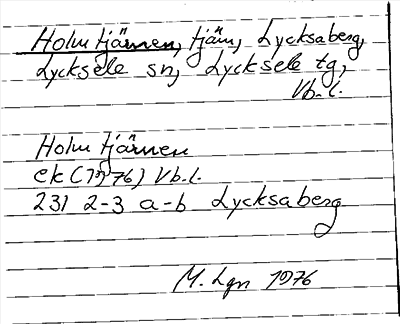 Holmtjärnen, tjärn, Lycksaberg,
Lycksele sn, Lycksele tg,
Vb.l.
Holmtjärnen
ek (1976) Vb.l.
231 2-3 a-b Lycksaberg
M. Lgn 1976